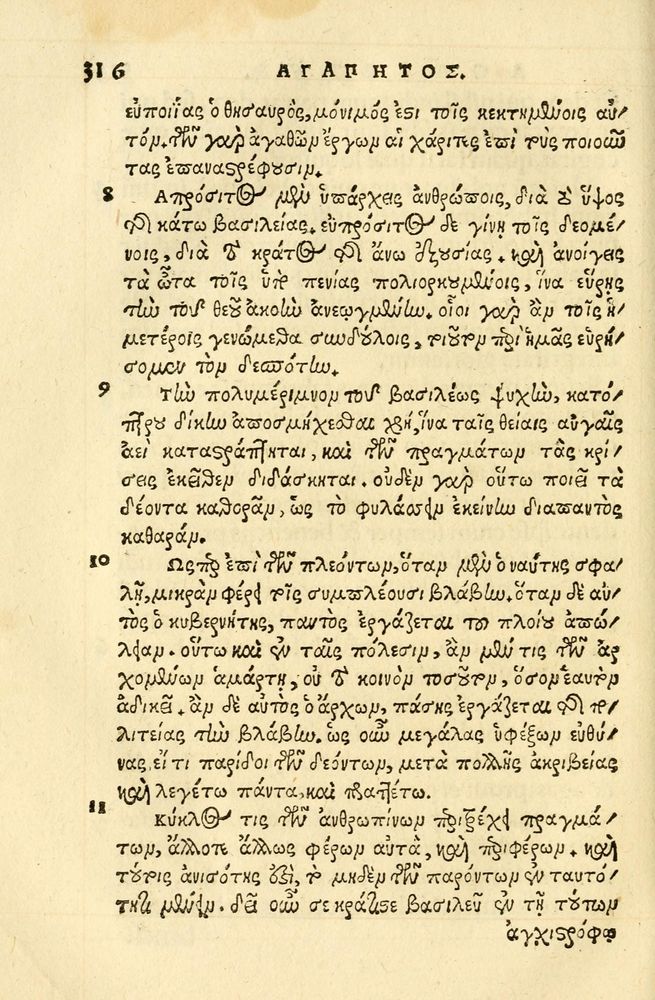 316 ΑΓΑΠΗΤΟΣ.
εὐποιΐας ὁ θησαυρὸς, μόνιμός ἐστι τοῖς κεκτημένοις αὐ-
τόν. τῶν γὰρ ἀγαθῶν ἔργων αἱ χάριτες ἐπὶ τοὺς ποιοῦν
τας ἐπαναστρέφουσιν.
8 Απρόσιτος μὲν ὑπάρχεις ἀνθρώποις, διὰ τὸ ὕψος
τῆς κάτω βασιλείας. εὐπρόσιτος δὲ γίνῃ τοῖς δεομέ-
νοις, διὰ τὸ κράτος τῆς ἄνω ἐξουσίας. καὶ ἀνοίγεις
τὰ ὦτα τοῖς ὑπὸ πενίας πολιορκουμένοις, ἵνα εὕρῃς
τὴν τοῦ θεοῦ ἀκοὴν ἀνεῳγμένην. οἷοι γὰρ ἂν τοῖς ἡ-
μετέροις γενώμεθα συνδούλοις, τοιοῦτον περὶ ἡμᾶς εὑρή-
σομεν τὸν δεσπότην.
9 Τὴν πολυμέριμνον τοῦ βασιλέως ψυχὴν, κατό-
πτρου δίκην ἀποσμήχεσθαι χρή, ἵνα ταῖς θείαις αὐγαῖς
ἀεὶ καταστράπτηται, καὶ τῶν πραγμάτων τὰς κρί-
σεις ἐκεῖθεν διδάσκηται. οὐδὲν γὰρ οὕτω ποιεῖ τὰ
δέοντα καθορᾶν, ὡς τὸ φυλάσσειν ἐκείνην διαπαντὸς
καθαράν.
10 Ωσπερ ἐπὶ τῶν πλεόντων, ὅταν μὲν ὁ ναύτης σφα-
λῇ, μικρὰν φέρει τοῖς συμπλέουσι βλάβην. ὅταν δὲ αὐ-
τὸς ὁ κυβερνήτης, παντὸς ἐργάζεται τοῦ πλοίου ἀπώ-
λειαν. οὕτω καὶ ἐν ταῖς πόλεσιν, ἂν μέν τις τῶν ἀρ
χομένων ἁμάρτῃ, οὐ τὸ κοινὸν τοσοῦτον, ὅσον ἑαυτὸν
ἀδικεῖ. ἂν δὲ αὐτὸς ὁ ἄρχων, πάσης ἐργάζεται τῆς πο-
λιτείας τὴν βλάβην. ὡς οὖν μεγάλας ὑφέξων εὐθύ-
νας, εἴ τι παρίδοι τῶν δεόντων, μετὰ πολλῆς ἀκριβείας
καὶ λεγέτω πάντα, καὶ πραττέτω.
11 Κύκλος τις τῶν ἀνθρωπίνων περιτρέχει πραγμά-
των, ἄλλοτε ἄλλως φέρων αὐτὰ, καὶ περιφέρων. καὶ
τούτοις ἀνισότης ἐστὶ, τὸ μηδὲν τῶν παρόντων ἐν ταυτό-
τητι μένειν. δεῖ οὖν σε κράτιστε βασιλεῦ ἐν τῇ τούτων
ἀγχιστρόφῳ